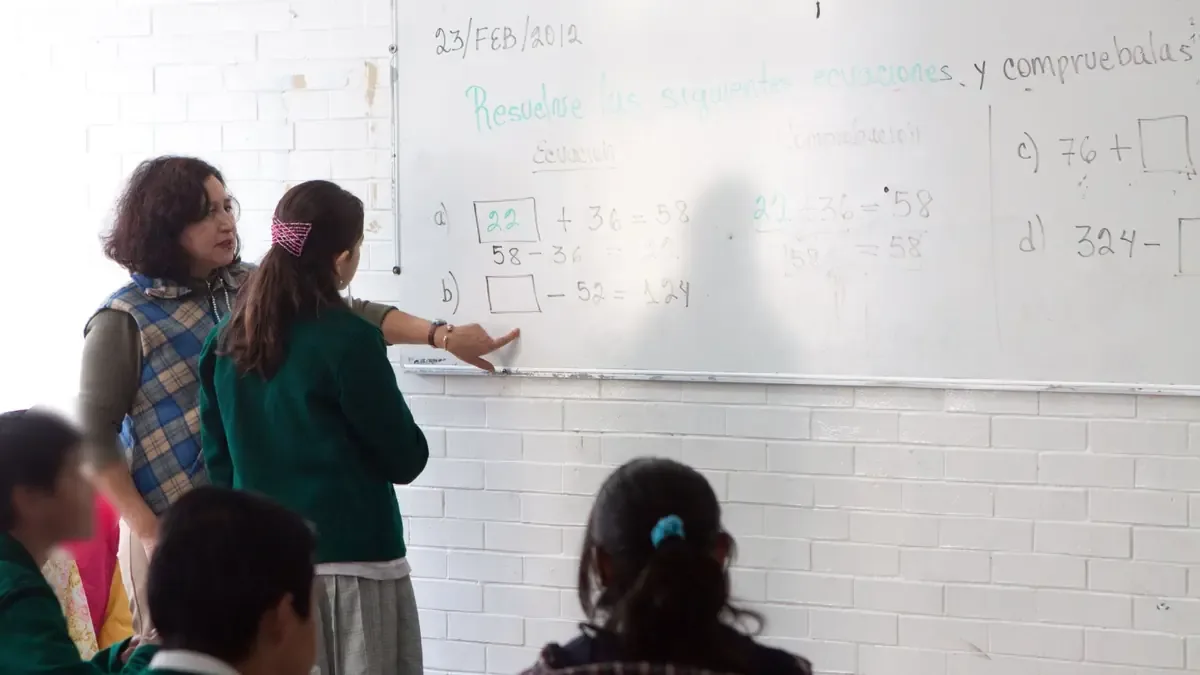 23/FEB/2012
Resuelve las siguientes ecuaciones y compruebalas
Ecuación
Comprobación
a) 22 + 36 = 58
22 + 36 = 58
58 - 36 =
58 = 58
b) - 52 = 124
c) 76 +
d) 324 -